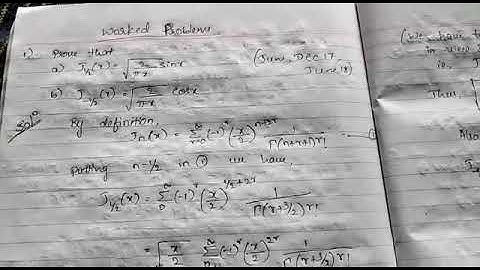 Worked Problems
1) Prove that
a) J_{1/2}(x) = \sqrt{\frac{2}{\pi x}} sin x
b) J_{-1/2}(x) = \sqrt{\frac{2}{\pi x}} cos x
(Jun, Dec 17,
June 18)
Sol^n
By definition,
J_n(x) = \sum_{r=0}^{\infty} (-1)^r (\frac{x}{2})^{n+2r} \frac{1}{\Gamma(n+r+1) r!} — ①
putting n=1/2 in ① we have,
J_{1/2}(x) = \sum_{0}^{\infty} (-1)^r (\frac{x}{2})^{1/2+2r} \frac{1}{\Gamma(r+3/2) r!}
= \sqrt{\frac{x}{2}} \sum^{\infty} (-1)^r (\frac{x}{2})^{2r} \frac{1}{\Gamma(r+3/2) r!}
(We have t
in view
ie,
Thus,
Also